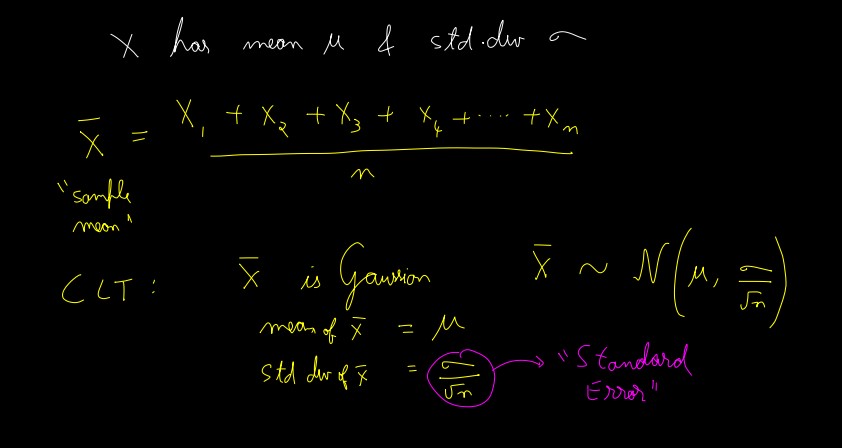 X has mean μ & std.dev σ
X̄ = X₁ + X₂ + X₃ + X₄ + ..... + Xₙ
n
"sample
mean"
CLT : X̄ is Gaussian X̄ ~ N(μ, σ/√n)
mean of X̄ = μ
std dev of X̄ = σ/√n → "Standard
Error"